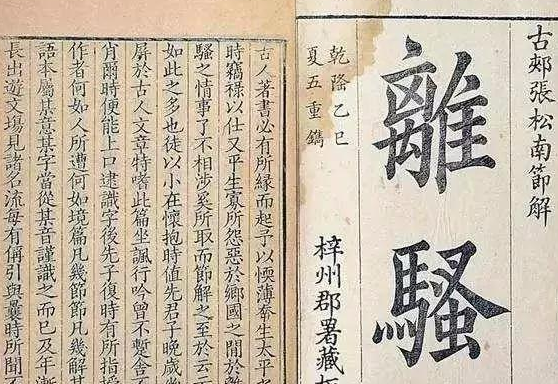 古郟張松南節解
離騷
乾隆乙巳
夏五重鐫
梓州郡署藏
古人著書必有所緣而起予以愞薄奉生太平
時竊禄以仕又平生寡所怨惡於鄉國之閒於
騷之情事了不相涉奚所取而節解之至於云
如此之多也徒以小在懷抱時值先君子晚歲
屏於古人文章特嗜此篇坐諷行吟曾不蹔舍
肖爾時便能上口逮識字後先子復時有所指
作者何如人所遭何如境篇凡幾節節凡幾解
語本屬某意某字當從某音謹識之而已及年漸
長出遊文場見諸名流每有偁引與曩時所聞